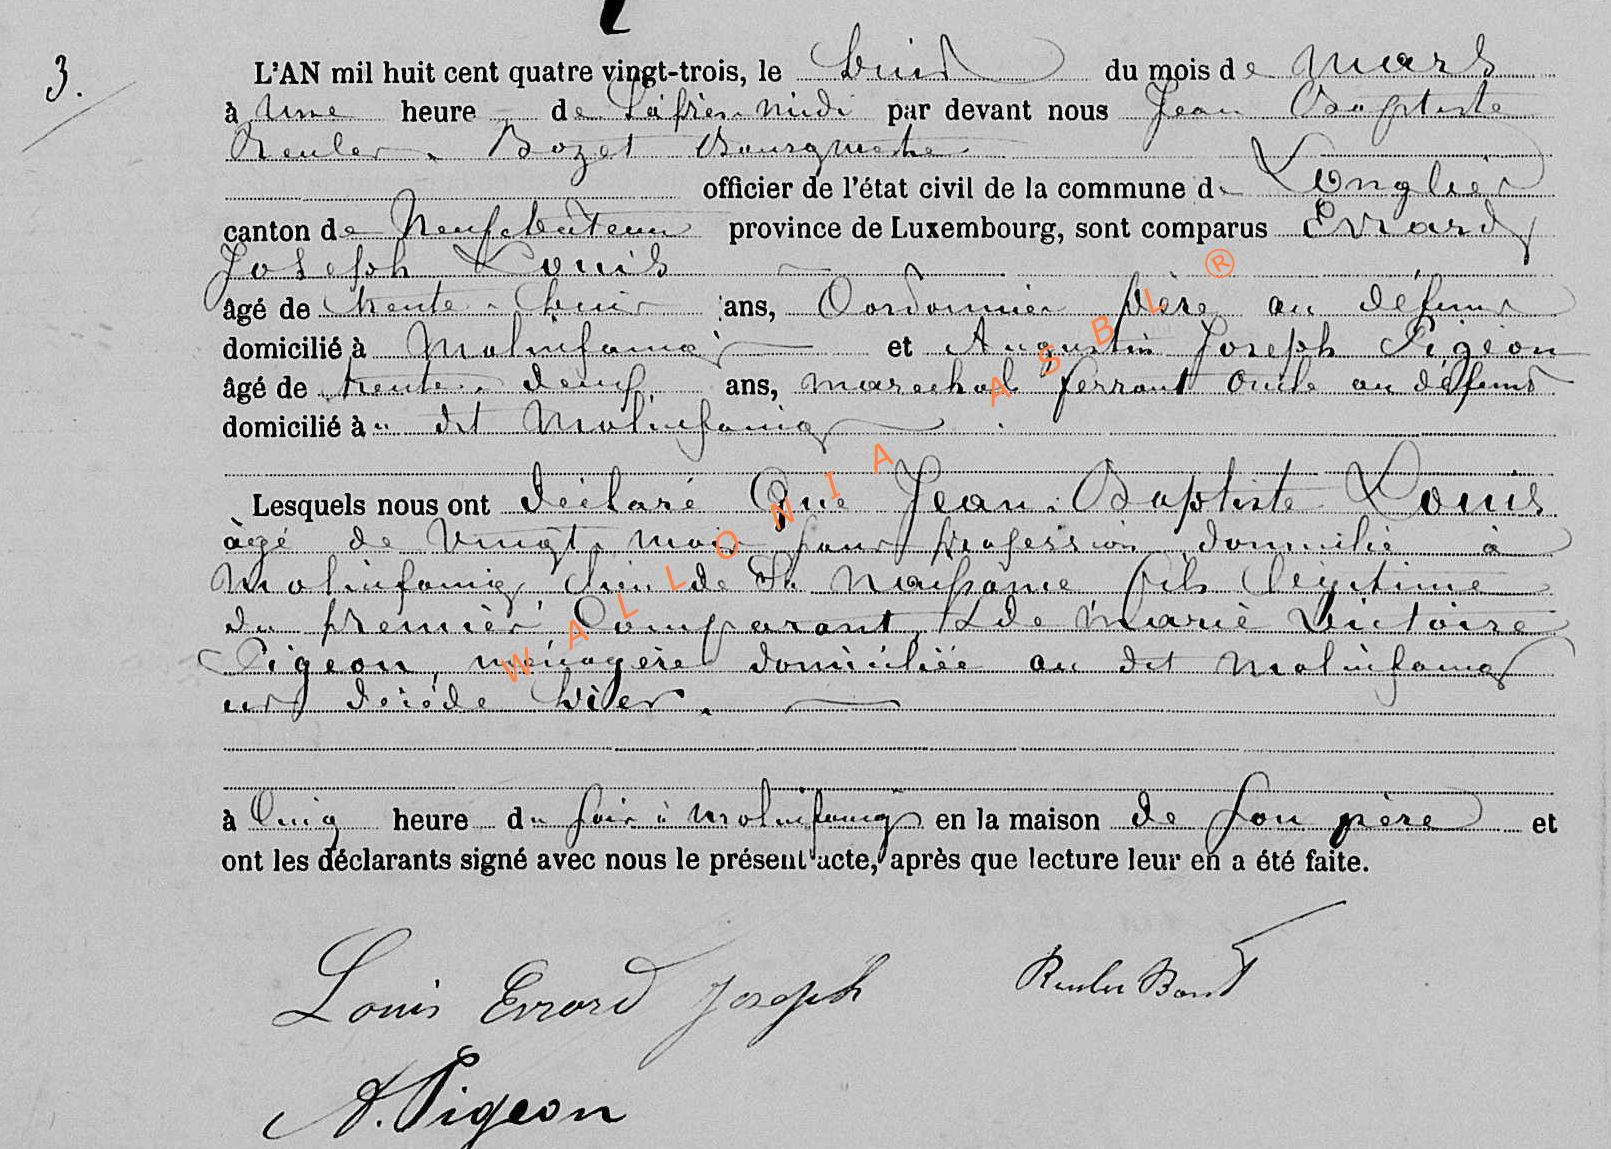 3.
L'AN mil huit cent quatre vingt-trois, le huit du mois de Mars
à une heure de l'après-midi par devant nous Jean Baptiste
Reuler-Bozet Bourgmestre
officier de l'état civil de la commune de Longlier
canton de Neufchâteau province de Luxembourg, sont comparus Evrard
Joseph Louis
âgé de trente-huit ans, Cordonnier père au défunt
domicilié à Molinfaing et Augustin Joseph Pigeon
âgé de trente-deux ans, marechal ferrant oncle au défunt
domicilié à dit Molinfaing
Lesquels nous ont déclaré Que Jean-Baptiste Louis
âgé de Vingt mois sans profession domicilié à
Molinfaing lieu de sa naissance fils légitime
du premier Comparant, & de Marie Victoire
Pigeon, ménagère domiciliée au dit Molinfaing
est décédé hier.
à Cinq heure du soir à Molinfaing en la maison de son père et
ont les déclarants signé avec nous le présent acte, après que lecture leur en a été faite.
Louis Evrard Joseph
Reuler Bozet
A. Pigeon
WALLONIA ASBL ®